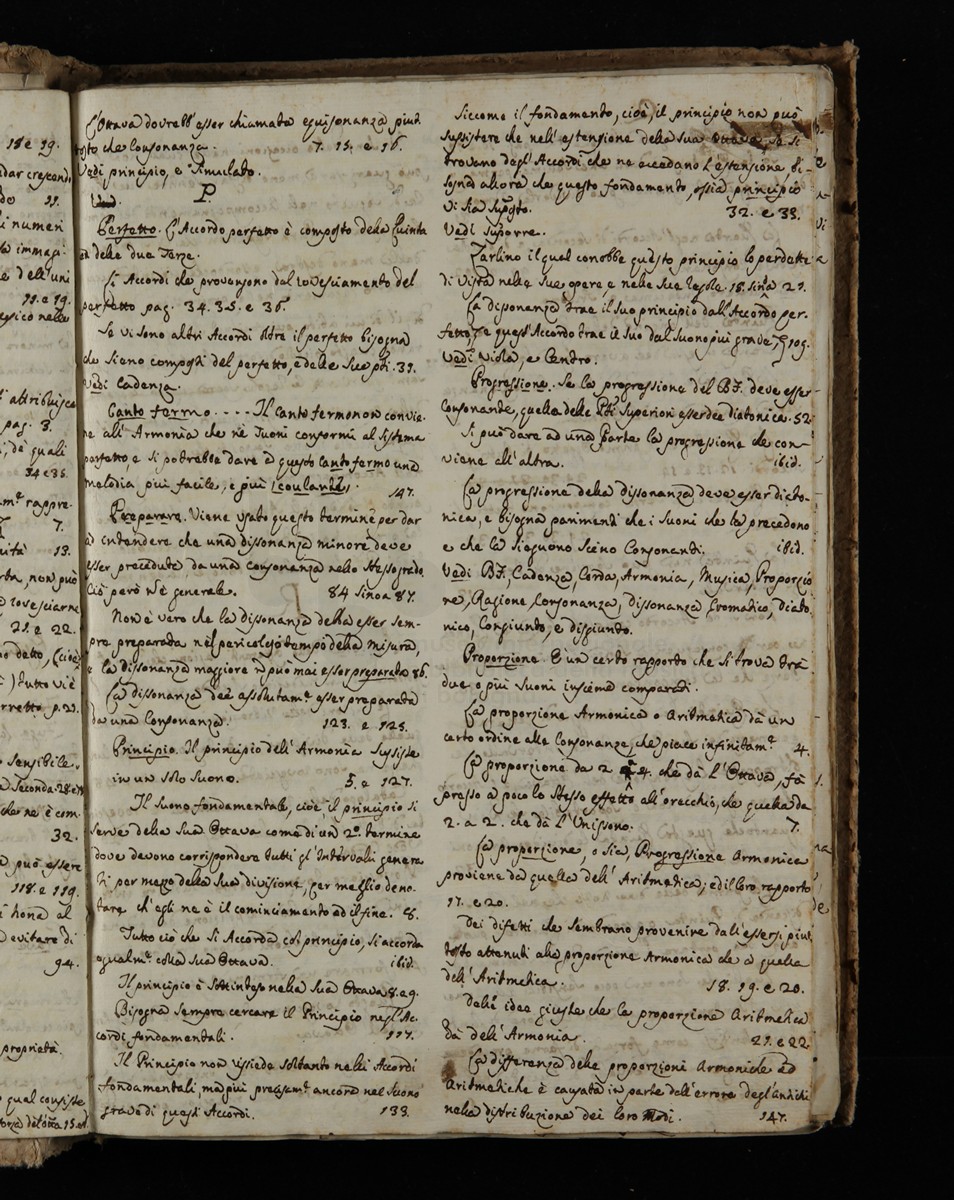 18 e 19.
dar crescendo
11.
i numeri
ta immagi-
e dell'uni
11. e 19.
esico nelle
attribuisce
pag. 3.
i, de quali
34 e 35.
am.e rappre-
7.
13.
rta, non può
e rovesciarne
21. e 22.
no detto, (cioè
) tutto vi è
rretto p. 21.
sensibile,
a Seconda 28. e 29
che ne è com-
32.
può essere
118. e 119.
i hona al
evitare di
94.
proprietà.
qual consiste
L'Ottava dovrebb'esser chiamata equisonanza piut-
tosto che Consonanza. 7. 15. e 16.
Vedi principio, e Rinuclato.
P.
Perfetto. L'Accordo perfetto è composto della Quinta
e delle due Terze.
Li Accordi che provengono dal rovesciamento del
perfetto pag. 34. 35. e 36.
Se vi sono altri Accordi oltre il perfetto bisogna
che siano composti del perfetto, e delle sue pti. 39.
Vedi Cadenza.
Canto fermo. - - - - Il Canto fermo non convie-
ne all'Armonia che ne Tuoni conformi al sistema
perfetto, e si potrebbe dare à questo canto fermo una
melodia più facile, e più (coulante). 147.
Preparare. Viene usato questo termine per dar
à intendere che una dissonanza minore deve
esser preceduta da una consonanza nello stesso grado.
Ciò però n'è generale. 84 sino a 87.
Non è vero che la dissonanza debba esser sem-
pre preparata nel pericoloso tempo della misura,
e la dissonanza maggiore ñ può mai esser preparata 86.
La dissonanza dee assolutam.e esser preparata
da una Consonanza. 123. e 125.
Principio. Il principio dell'Armonia sussiste
in un solo Suono. 5. e 127.
Il suono fondamentale, cioè il principio si
serve della sua Ottava come di un 2.o termine
dove devono corrispondere tutti gl'Intervalli genera-
ti per mezzo della sua divisione, per meglio deno-
tare ch'egli ne è il cominciamento ed il fine. 8.
Tutto ciò che si Accorda col principio, si accorda
egualm.e colla sua Ottava. ibid.
Il principio è sottinteso nella sua Ottava 8. e 9.
Bisogna sempre cercare il Principio negl'Ac-
cordi fondamentali. 117.
Il Principio non risiede soltanto nelli Accordi
fondamentali, ma più precisam.e ancora nel suono
grave di questi Accordi. 133.
Siccome il fondamento, cioè, il principio non può
sussistere che nell'estensione della sua Ottava, se si
trovano degl'Accordi che ne eccedano l'estensione, bi-
sogna allora che questo fondamento, ossia principio
vi sia supposto. 32. e 33.
Vedi Supporre.
Zarlino il qual conobbe questo principio lo perdette
di vista nelle sue opere e nelle sue regole. 18. sino 21.
La dissonanza trae il suo principio dall'Accordo per-
fetto, e quest'Accordo trae il suo dal suono più grave 109.
Vedi Viola, e Centro.
Progressione. Se la progressione del B.F. deve esser
Consonante, quella delle Pti Superiori esser dee diatonica. 52
Si può dare ad una Parte la progressione che con-
viene all'altra. ibid.
La progressione della dissonanza deve esser diato-
nica, e bisogna parimenti che i Suoni che la precedono
e che la sieguono sieno Consonanti. ibid.
Vedi B.F., Cadenza, Corda, Armonia, Musica, Proporzio-
ne, Ragione, Consonanza, dissonanza, Cromatico, diato-
nico, Congiunto, e disgiunto.
Proporzione. È un certo rapporto che si trova trà
due o più suoni insieme comparati.
La proporzione Armonica o Aritmetica dà un
certo ordine alle Consonanze, che piace infinitam.e 4.
La proporzione da 2 a 4. che dà l'Ottava, fà
presso a poco lo stesso effetto all'orecchio, che quella da
2. a 2. che dà l'Unissono. 7.
La proporzione, o sia, Progressione Armonica
proviene da quella dell'Aritmetica; ed il loro rapporto
17. e 20.
Dei difetti che sembrano provenire dall'essersi piut-
tosto attenuti alla proporzione Armonica che a quella
dell'Aritmetica. 18. 19. e 20.
Delle idee giuste che la proporzione Aritmetica
dà dell'Armonia. 21. e 22
La differenza delle proporzioni Armoniche ed
Aritmetiche è causata in parte dall'errore degl'antichi
nella distribuzione dei loro Modi. 147.